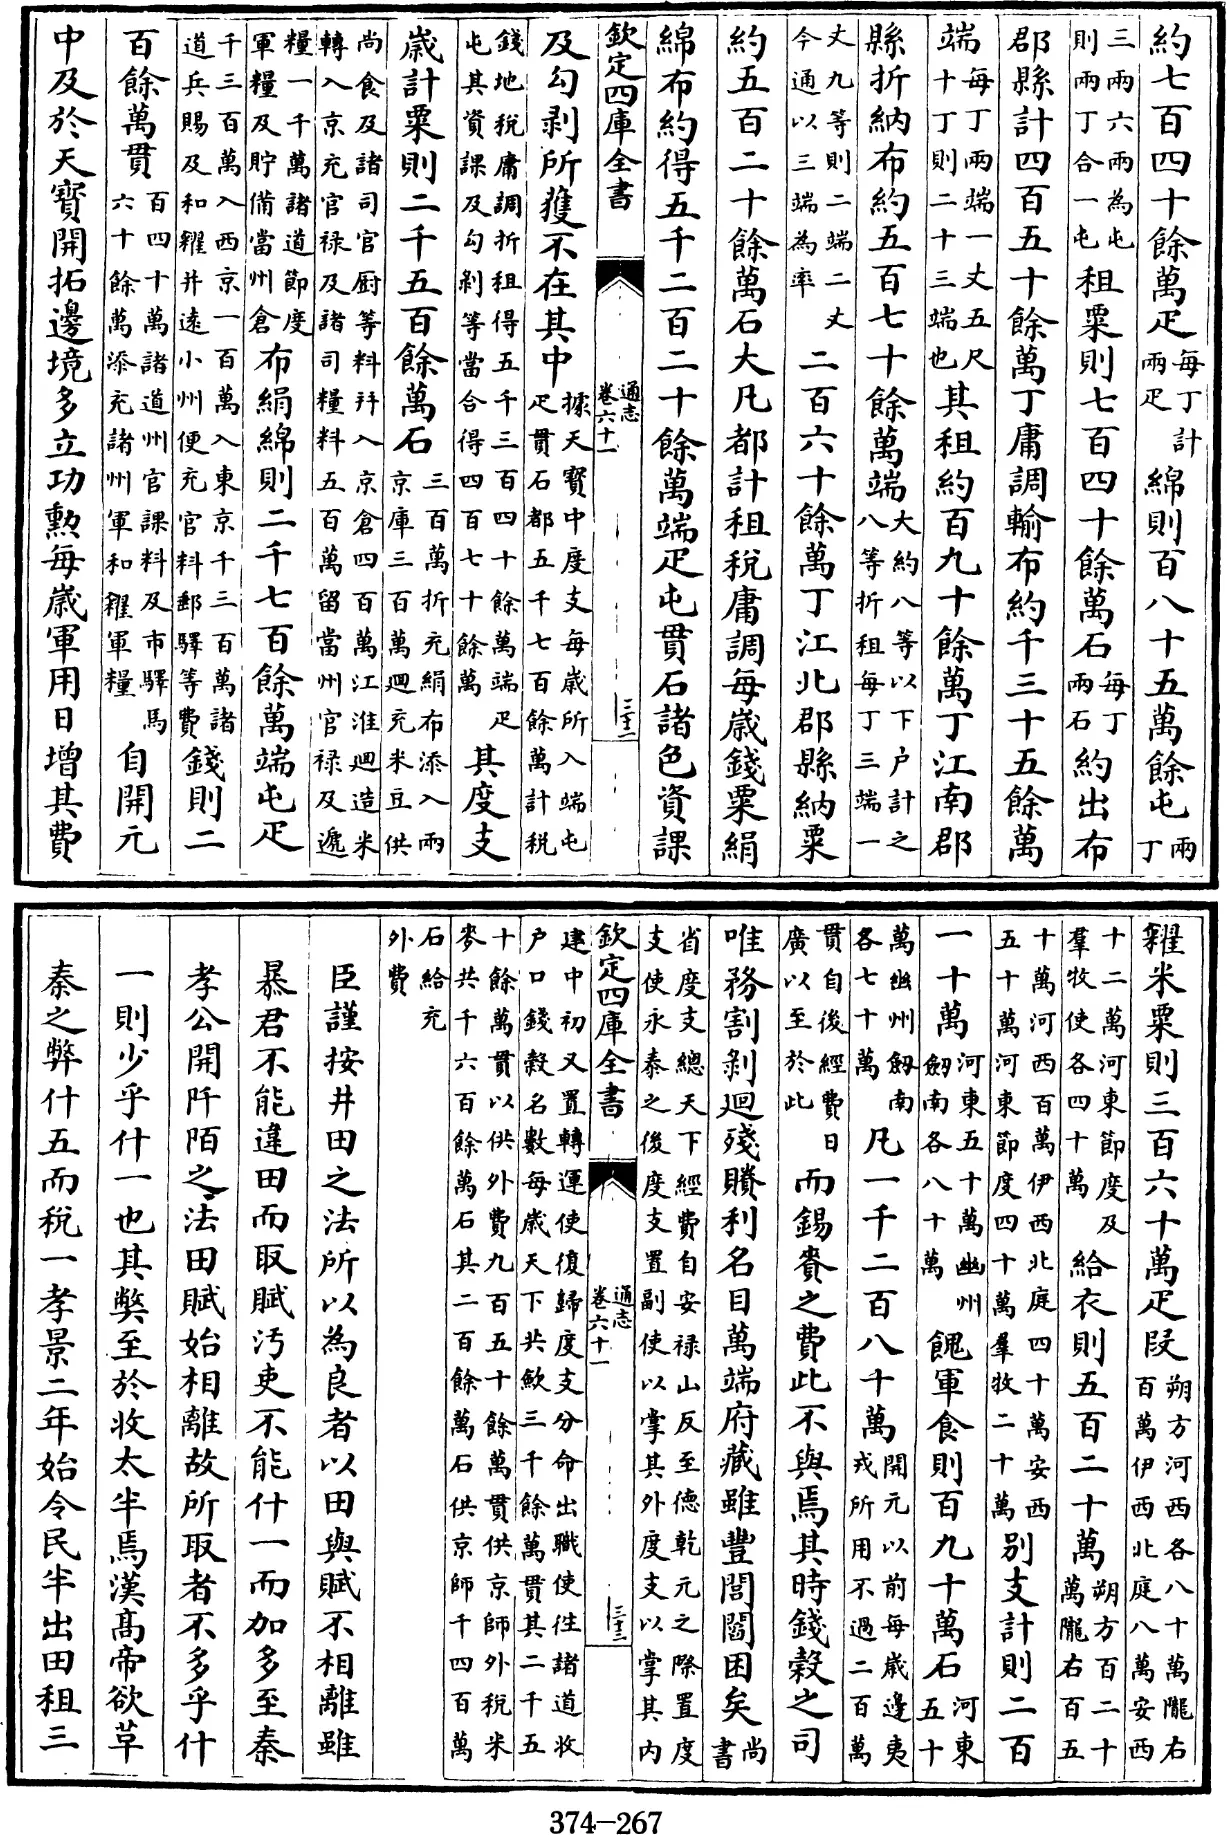 約七百四十餘萬疋每丁計兩疋綿則百八十五萬餘屯兩丁
三兩六兩為屯則兩丁合一屯租粟則七百四十餘萬石每丁兩石約出布
郡縣計四百五十餘萬丁庸調輸布約千三十五餘萬
端每丁兩端一丈五尺十丁則二十三端也其租約百九十餘萬丁江南郡
縣折納布約五百七十餘萬端大約八等以下户計之八等折租每丁三端一
丈九等則二端二丈今通以三端為率二百六十餘萬丁江北郡縣納粟
約五百二十餘萬石大凡都計租稅庸調每歲錢粟絹
綿布約得五千二百二十餘萬端疋屯貫石諸色資課
欽定四庫全書 通志卷六十一 三十二
及勾剥所獲不在其中據天寶中度支每歲所入端屯疋貫石都五千七百餘萬計稅
錢地稅庸調折租得五千三百四十餘萬端疋屯其資課及勾剥等當合得四百七十餘萬其度支
歲計粟則二千五百餘萬石三百萬折充絹布添入兩京庫三百萬迴充米豆供
尚食及諸司官厨等料并入京倉四百萬江淮迴造米轉入京充官祿及諸司糧料五百萬留當州官祿及遞
糧一千萬諸道節度軍糧及貯備當州倉布絹綿則二千七百餘萬端屯疋
千三百萬入西京一百萬入東京千三百萬諸道兵賜及和糴并遠小州便充官料郵驛等費錢則二
百餘萬貫百四十萬諸道州官課料及市驛馬六十餘萬添充諸州軍和糴軍糧自開元
中及於天寶開拓邊境多立功勲每歲軍用日增其費
糴米粟則三百六十萬疋段朔方河西各八十萬隴右百萬伊西北庭八萬安西
十二萬河東節度及羣牧使各四十萬給衣則五百二十萬朔方百二十萬隴右百五
十萬河西百萬伊西北庭四十萬安西五十萬河東節度四十萬羣牧二十萬别支計則二百
一十萬河東五十萬幽州劒南各八十萬餽軍食則百九十萬石河東五十
萬幽州劒南各七十萬凡一千二百八十萬開元以前每歲邊夷戎所用不過二百萬
貫自後經費日廣以至於此而錫賚之費此不與焉其時錢穀之司
唯務割剝迴殘賸利名目萬端府藏雖豐閭閻困矣尚書
省度支總天下經費自安禄山反至德乾元之際置度支使永泰之後度支置副使以掌其外度支以掌其内
欽定四庫全書 通志卷六十一 三十三
建中初又置轉運使復歸度支分命出職使徃諸道收户口錢穀名數每歲天下共歛三千餘萬貫其二千五
十餘萬貫以供外費九百五十餘萬貫供京師外稅米麥共千六百餘萬石其二百餘萬石供京師千四百萬
石給充外費
臣謹按井田之法所以為良者以田與賦不相離雖
暴君不能違田而取賦汚吏不能什一而加多至秦
孝公開阡陌之法田賦始相離故所取者不多乎什
一則少乎什一也其獘至於收太半焉漢髙帝欲革
秦之弊什五而稅一孝景二年始令民半出田租三
374-267